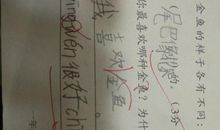 金鱼的样子各有不同:
尾巴象把的。(3分
你最喜欢哪种金鱼?为什
我喜欢金鱼
很好ch
年